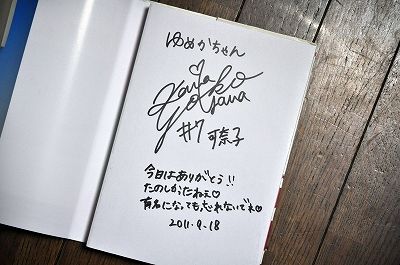 ゆめかちゃん
#7 可奈子
今日はありがとう!!
たのしかったねぇ♡
有名になっても忘れないでネ♡
2011.9.18